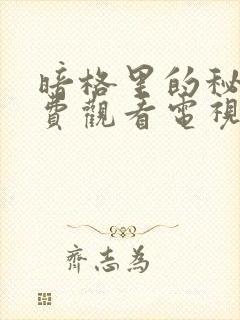 暗格里的秘
費觀看電視
齊志為